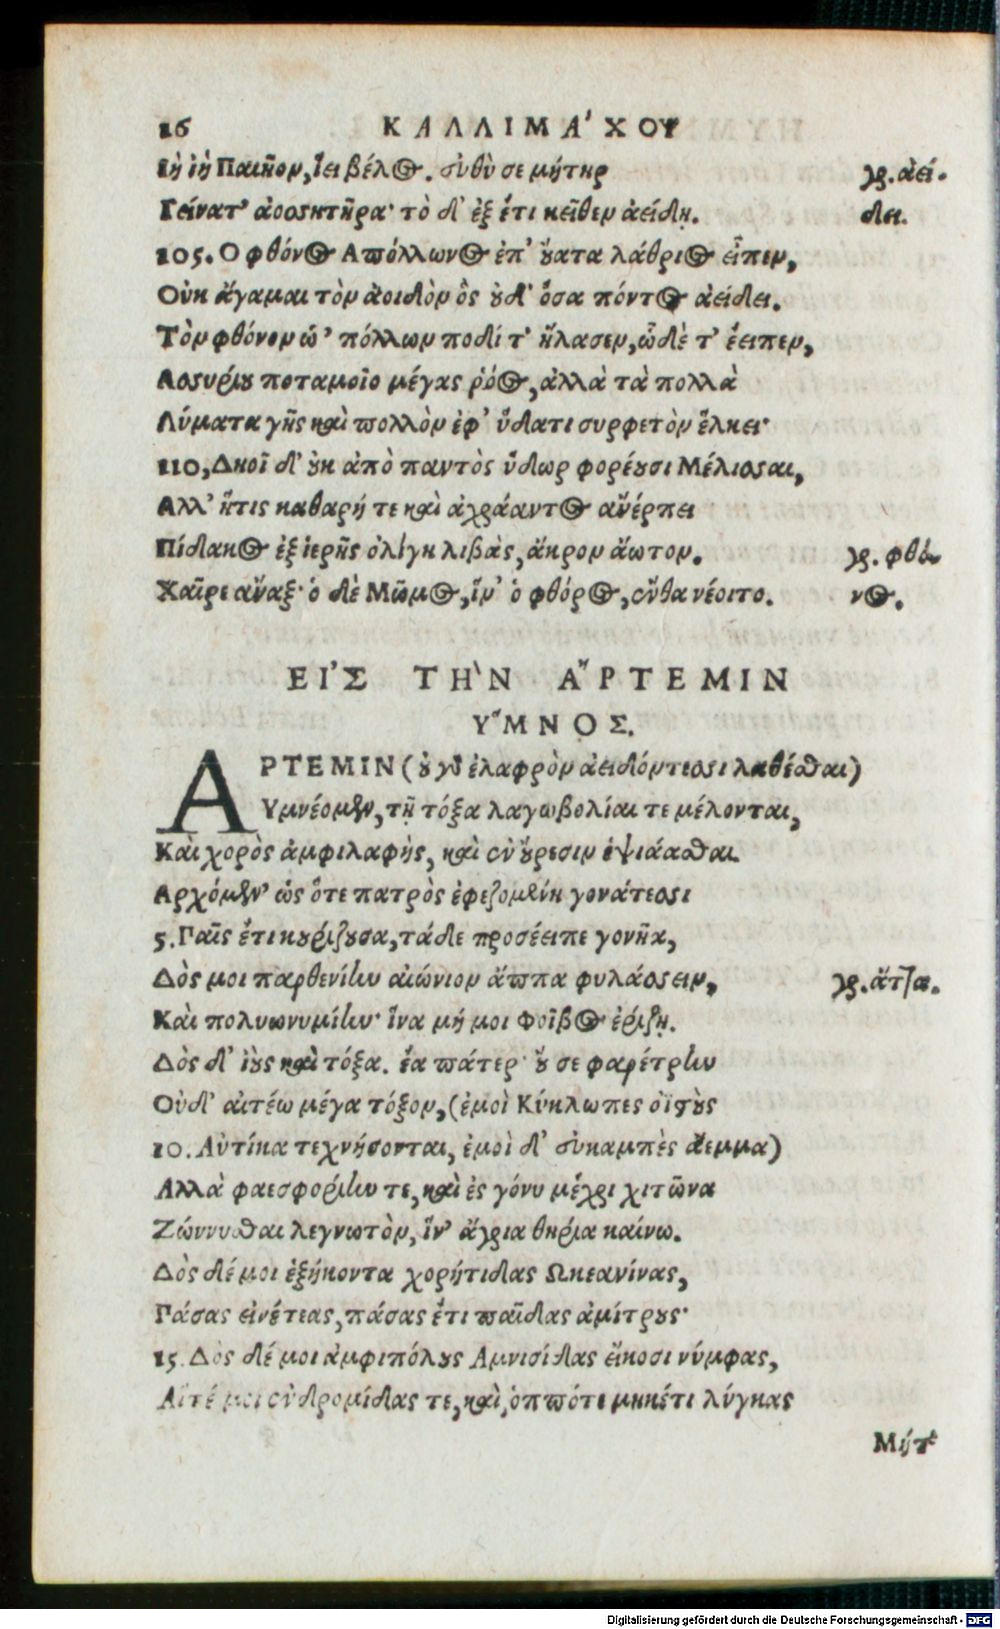 16 ΚΑΛΛΙΜΑ'ΧΟΥ
Ιὴ ἰὴ Παιῆον, ἵει βέλος. εὐθὺ σε μήτηρ γρ. ἀεί-
Γείνατ' ἀοσσητῆρα· τὸ δ' ἐξ ἔτι κεῖθεν ἀείδῃ. δει.
105. Ο φθόνος Απόλλωνος ἐπ' οὔατα λάθριος εἶπεν,
Οὐκ ἄγαμαι τὸν ἀοιδὸν ὃς οὐδ' ὅσα πόντος ἀείδει.
Τὸν φθόνον ὡ' πόλλων ποδί τ' ἤλασεν, ὧδὲ τ' ἔειπεν,
Ασσυρίου ποταμοῖο μέγας ῥόος, ἀλλὰ τὰ πολλὰ
Λύματα γῆς καὶ πολλὸν ἐφ' ὕδατι συρφετὸν ἕλκει·
110, Δηοῖ δ' οὐκ ἀπὸ παντὸς ὕδωρ φορέουσι Μέλισσαι,
Αλλ' ἥτις καθαρή τε καὶ ἀχράαντος ἀνέρπει
Πίδακος ἐξ ἱερῆς ὀλίγη λιβὰς, ἄκρον ἄωτον. γρ. φθό-
Χαῖρε ἄναξ· ὁ δὲ Μῶμος, ἵν' ὁ φθόρος, ἔνθα νέοιτο. νος.
ΕΙ'Σ ΤΗ`Ν Α῎ΡΤΕΜΙΝ
Υ῞ΜΝΟΣ.
ΑΡΤΕΜΙΝ (οὐ γὰρ ἐλαφρὸν ἀειδόντεσσι λαθέσθαι)
Υμνέομεν, τῇ τόξα λαγωβολίαι τε μέλονται,
Καὶ χορὸς ἀμφιλαφὴς, καὶ ἐν οὔρεσιν ἑψιάασθαι.
Αρχόμεν' ὡς ὅτε πατρὸς ἐφεζομένη γονάτεσσι
5. Παῖς ἔτι κουρίζουσα, τάδε προσέειπε γονῆα,
Δὸς μοι παρθενίην αἰώνιον ἄππα φυλάσσειν, γρ. ἄττα.
Καὶ πολυωνυμίην· ἵνα μή μοι Φοῖβος ἐρίζῃ.
Δὸς δ' ἰοὺς καὶ τόξα. ἔα πάτερ· οὔ σε φαρέτρην
Οὐδ' αἰτέω μέγα τόξον, (ἐμοὶ Κύκλωπες ὀϊστοὺς
10. Αὐτίκα τεχνήσονται, ἐμοὶ δ' εὐκαμπὲς ἄεμμα)
Αλλὰ φαεσφορίην τε, καὶ ἐς γόνυ μέχρι χιτῶνα
Ζώννυσθαι λεγνωτὸν, ἵν' ἄγρια θηρία καίνω.
Δὸς δέ μοι ἑξήκοντα χορήτιδας Ωκεανίνας,
Πάσας εἰνέτεας, πάσας ἔτι παῖδας ἀμίτρους·
15. Δὸς δέ μοι ἀμφιπόλους Αμνισίδας εἴκοσι νύμφας,
Αἵτέ μοι ἐνδρομίδας τε, καὶ, ὁππότε μηκέτι λύγκας
Μήτ'